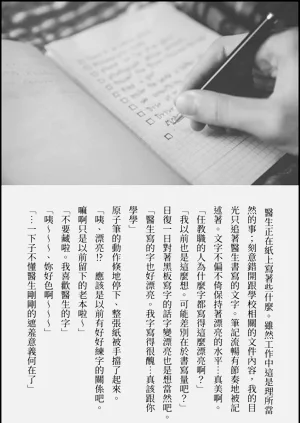 醫生正在紙上寫著些什麼。雖然工作中這是理所當
然的事;刻意錯開跟學校相關的文件內容,我的目
光只追著醫生書寫的文字。筆記流暢有節奏地被記
述著。文字不偏不倚保持著漂亮的水平…真美啊。
「任教職的人為什麼字都寫得這麼漂亮啊?」
「我以前也是這麼想。可能差別在於書寫量吧?」
日復一日對著黑板寫字的話字變漂亮也是想當然吧。
「醫生寫的字也好漂亮。我字寫得很醜…真該跟你
學學」
原子筆的動作倏地停下、整張紙被手擋了起來。
「咦、漂亮!?　應該是以前有好好練字的關係吧。
嘛啊只是以前留下的老本啦~」
「不要藏啦。我喜歡醫生的字」
「咦~~~、妳好色啊~~~」
「…一下子不懂醫生剛剛的遮羞意義何在了」